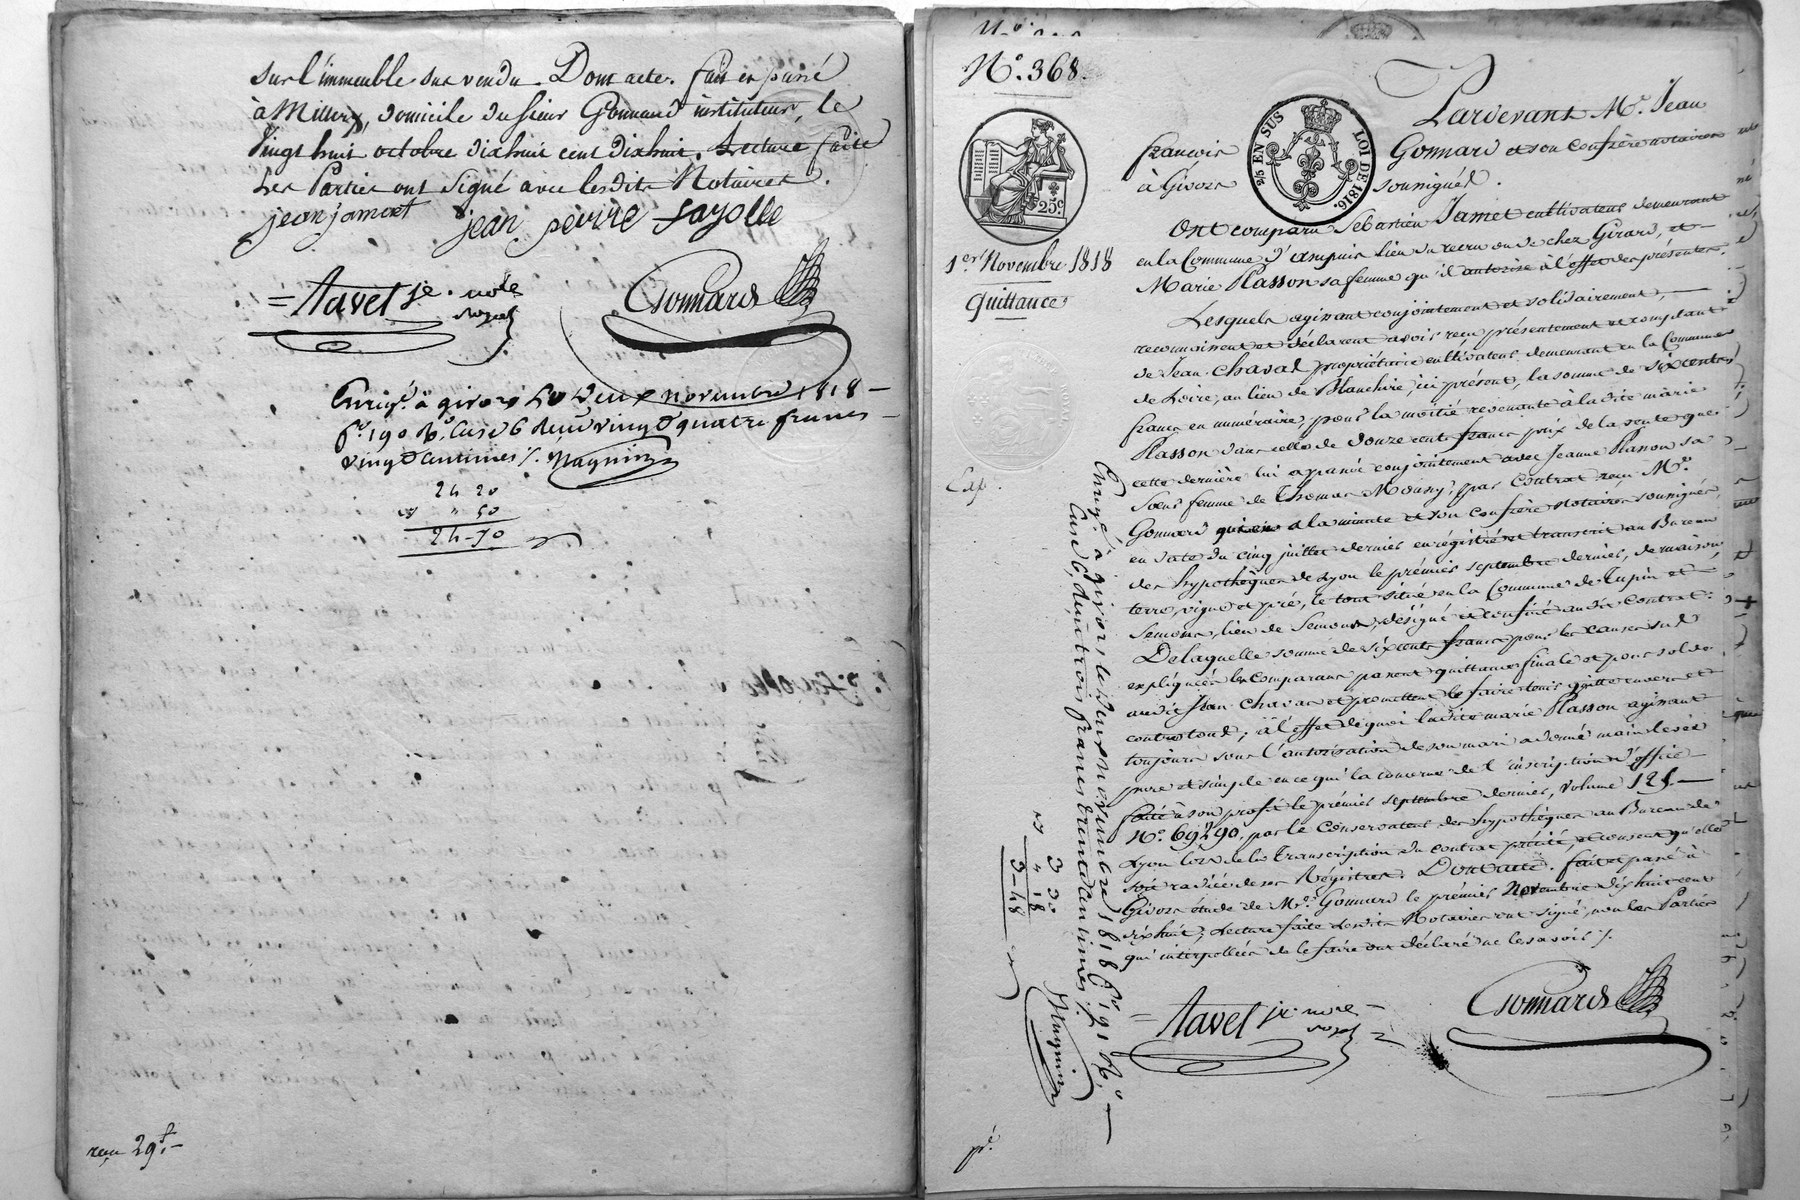 sur l'immeuble sus vendu. Dont acte. fait et passé
à Millery, domicile du sieur Gonnard instituteur, le
Vingt huit octobre dixhuit cent dixhuit. Lecture faite
Les Parties ont signé avec lesdits Notaires.
jean jamet jean peirre fayolle
= Tavel je. not.e
Gonnard
Enrég.é à givors Le deux novembre 1818 —
f.o 190 R.o Case 6 Reçu vingt quatre francs —
vingt centimes /.
24 20
" 50
24-70
reçu 29.f —
N.o 368.
2/5 EN SUS
LOI DE 1816.
25c
1.er Novembre 1818
Quittance
Pardevant M.e Jean
françois Gonnard et son Confrère notaires
à Givors soussignés.
Ont comparu Sébastien Jamet cultivateur demeurant
en la Commune d'ampuis lieu du recru ou de chez Girard, et
Marie Plasson sa femme qu'il autorise à l'effet des présentes.
Lesquels agissant conjointement et solidairement, —
reconnaissent et déclarent avoir reçu présentement et comptant
de Jean Chavas propriétaire cultivateur demeurant en la Commune
de Loire, au lieu de Blanchire, ici présent, la somme de six cents
francs en numéraire, pour la moitié revenante à la dite marie
Plasson dans celle de douze cents francs prix de la vente que
cette dernière lui a passée conjointement avec Jeanne Plasson sa
Sœur femme de Thomas Mousy, par Contrat reçu M.e
Gonnard qui en a la minute et son confrère notaires soussignés
en date du cinq juillet dernier enrégistré et transcrit au Bureau
des hypothèques de Lyon le prémier septembre dernier, de maison
terre, vigne et pré, le tout situé en la Commune de Tupin et
Semons, lieu de Semons, désigné et confiné audit Contrat.
De laquelle somme de six cents francs pour les causes sus
expliquées les Comparans passent quittance finale et pour solde
audit Jean Chavas et promettent le faire tenir quitte envers et
contre tous; à l'effet de quoi ladite marie Plasson agissant
toujours sous l'autorisation de son mari a donné main levée
pure et simple en ce qui la concerne de l'inscription d'office —
faite à son profit le prémier septembre dernier, volume 121. —
N.o 69290, par le Conservateur des hypothèques au Bureau de
Lyon lors de la Transcription du contrat précité, et consent qu'elle
soit radiée de ses Régistres. Dont acte. fait et passé à
Givors étude de M.e Gonnard le prémier Novembre dixhuit cent
dixhuit; Lecture faite Lesdits Notaires ont signé, non les Parties
qui interpellées de le faire ont déclaré ne le savoir /.
= Tavel je. not.e
Gonnard
Enreg.é à givors le deux novembre 1818 f.o 191 R.o —
Case 6, Reçu trois francs trente centimes /.
3 30
" 18
3-48